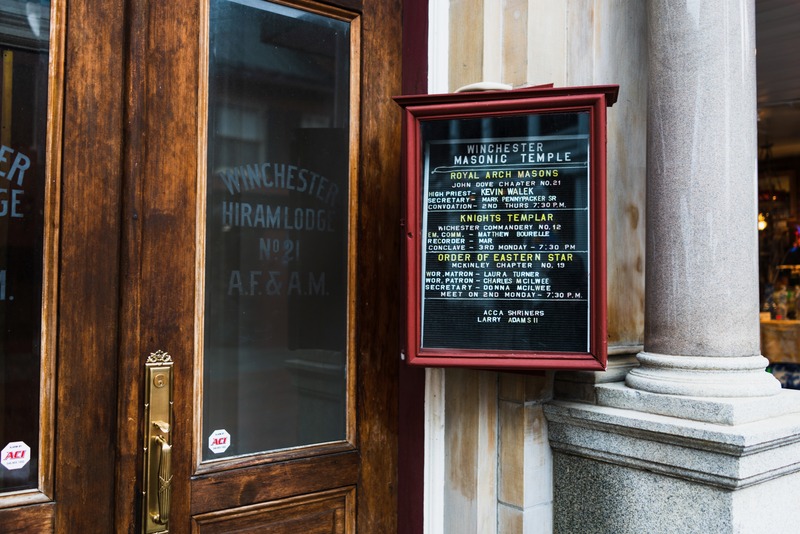 ER
GE
M.
ACI
WINCHESTER
HIRAM LODGE
No 21
A.F. & A.M.
ACI
WINCHESTER
MASONIC TEMPLE
ROYAL ARCH MASONS
JOHN DOVE CHAPTER NO.21
HIGH PRIEST- KEVIN WALEK
SECRETARY- MARK PENNYPACKER SR
CONVOATION- 2ND THURS 7:30 P.M.
KNIGHTS TEMPLAR
WICHESTER COMMANDERY NO.12
EM. COMM. - MATTHEW BOURELLE
RECORDER - MAR
CONCLAVE - 3RD MONDAY - 7:30 PM
ORDER OF EASTERN STAR
MCKINLEY CHAPTER NO.19
WOR. MATRON - LAURA TURNER
WOR. PATRON - CHARLES MCILWEE
SECRETARY - DONNA MCILWEE
MEET ON 2ND MONDAY - 7:30 P.M.
ACCA SHRINERS
LARRY ADAMS II